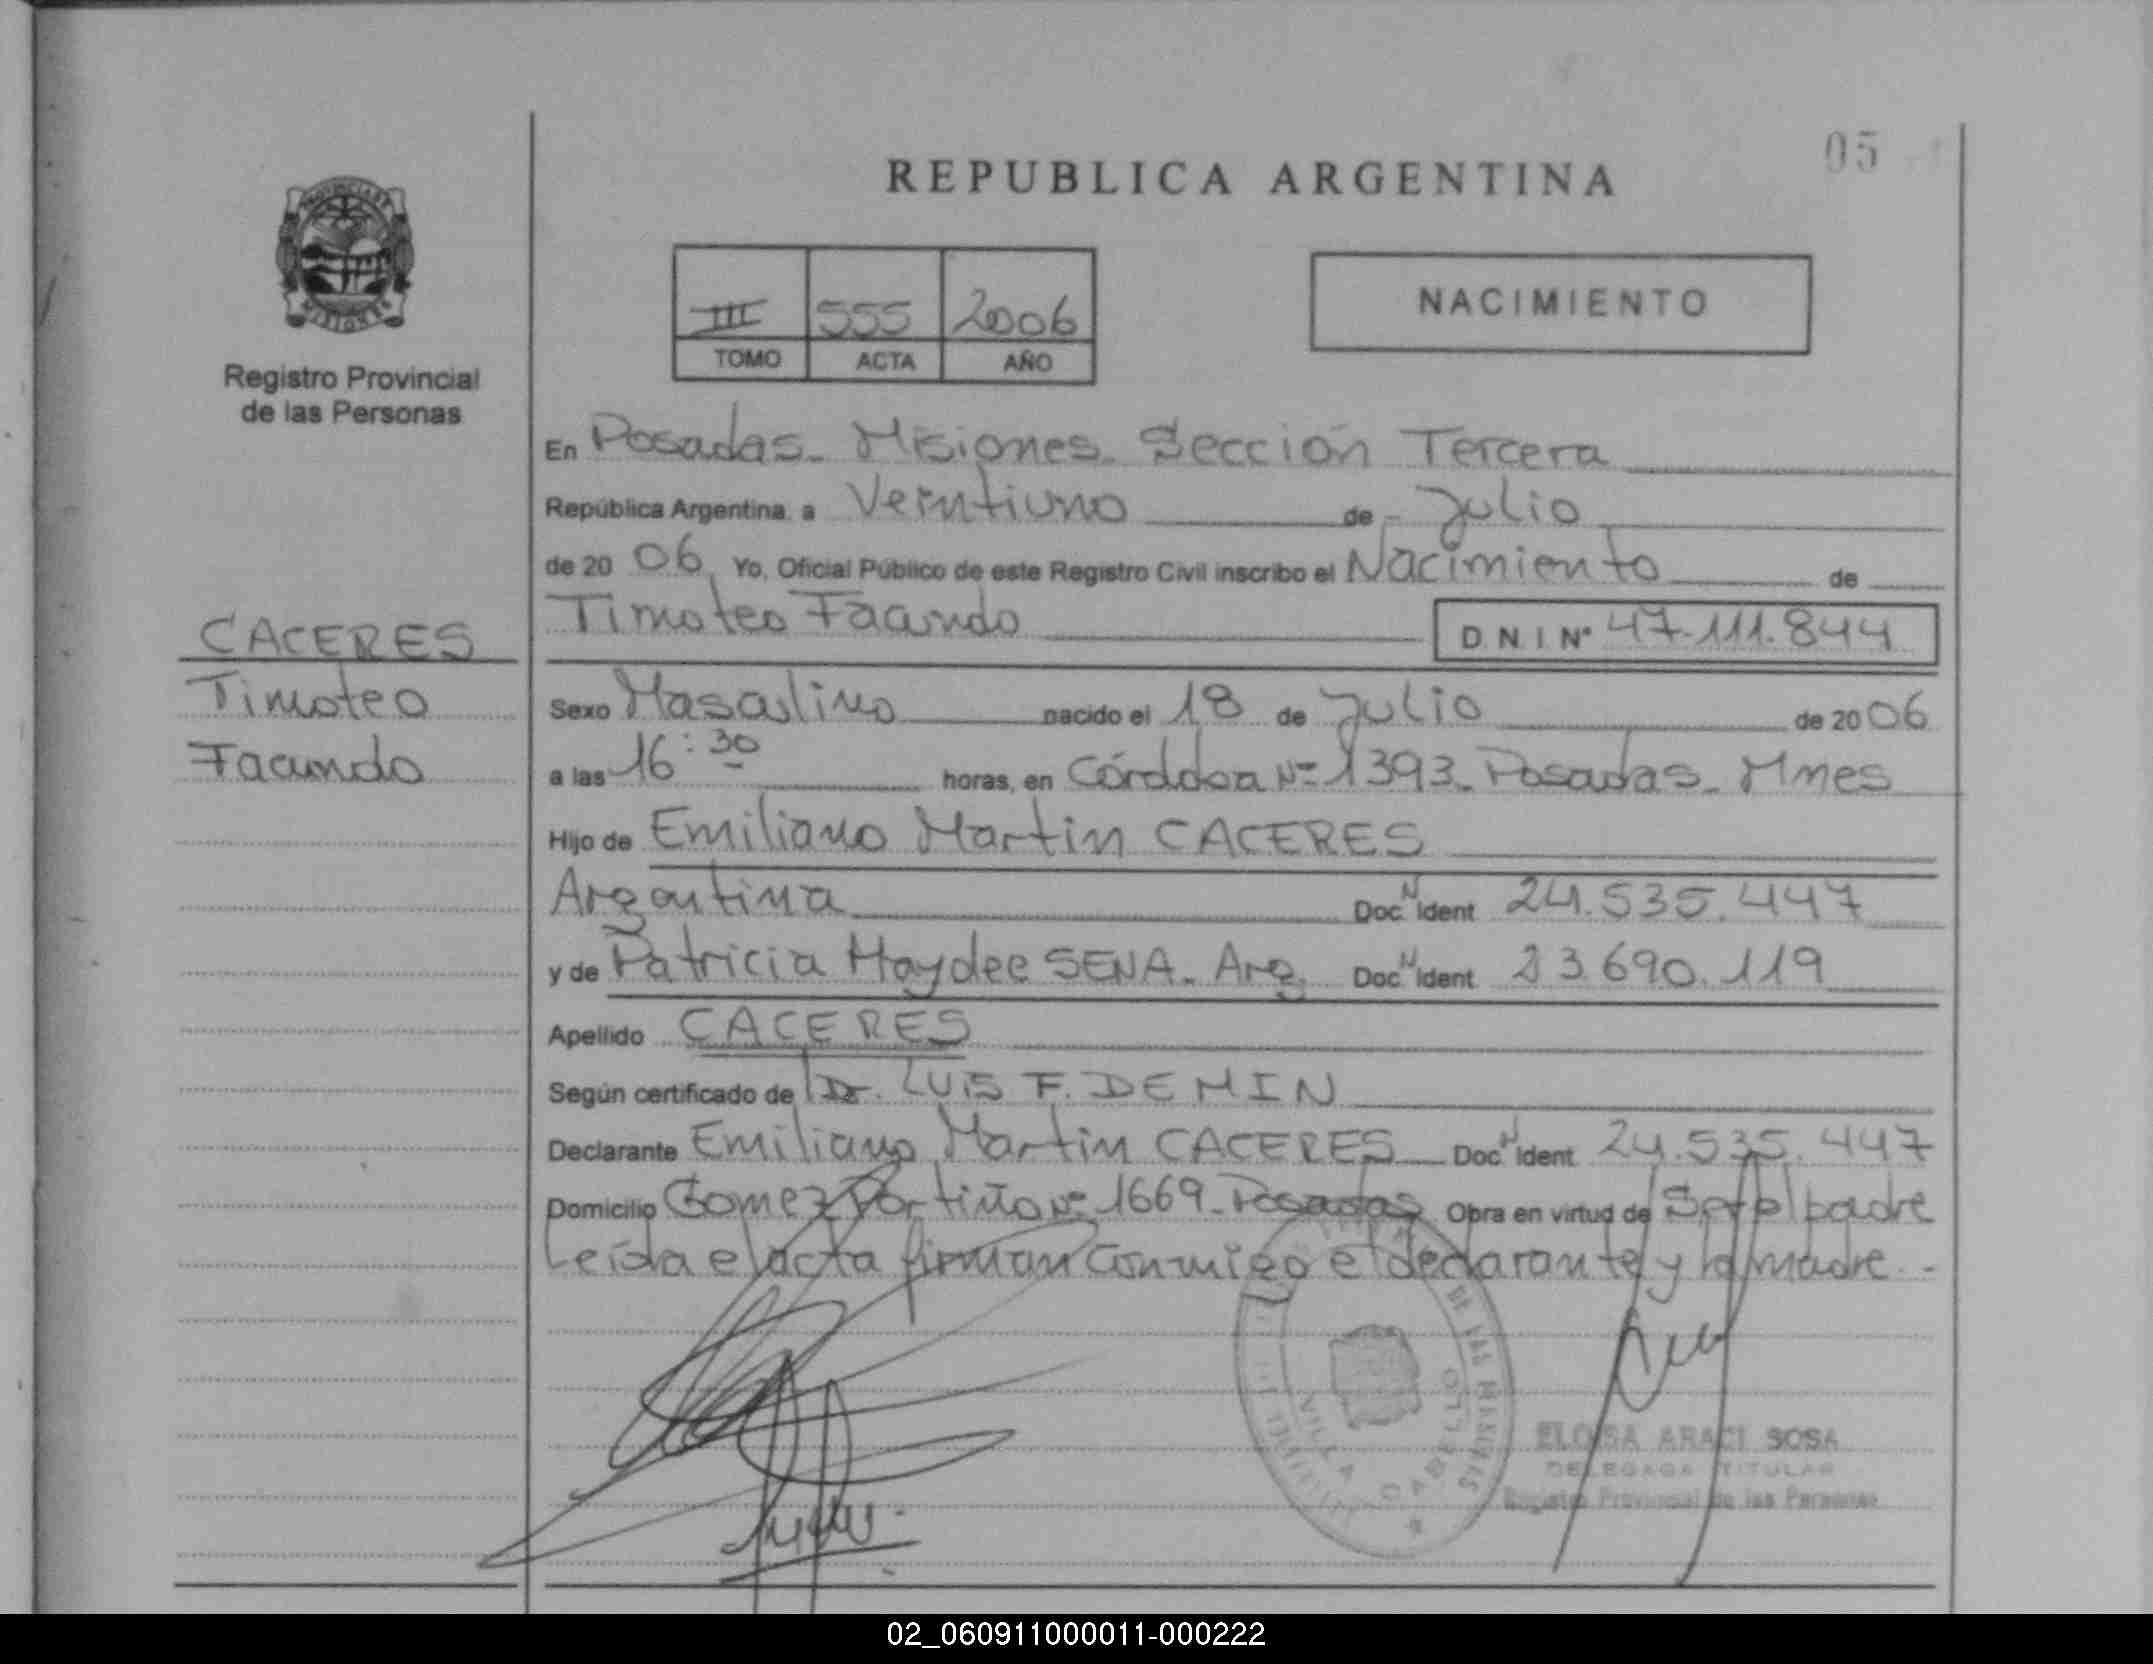 05
REPUBLICA ARGENTINA
III 555 2006
TOMO ACTA AÑO
NACIMIENTO
Registro Provincial
de las Personas
CACERES
Timoteo
Facundo
En Posadas - Misiones - Sección Tercera
República Argentina, a Veintiuno de Julio
de 20 06 Yo, Oficial Público de este Registro Civil inscribo el Nacimiento de
Timoteo Facundo D.N.I Nº 47.111.844
Sexo Masculino nacido el 18 de Julio de 20 06
a las 16:30 horas, en Córdoba Nº 1393 - Posadas - Mnes
Hijo de Emiliano Martin CACERES
Argentina Doc. Ident 24.535.447
y de Patricia Haydee SENA - Arg. Doc. Ident 23.690.119
Apellido CACERES
Según certificado de Dr. LUIS F. DEMIN
Declarante Emiliano Martin CACERES Doc. Ident 24.535.447
Domicilio Gomez Portiño Nº 1669 - Posadas Obra en virtud de Ser el padre
Leída el acta firman conmigo el declarante y la madre -
DE LAS PERSONAS
VILLA CABELLO
ELOISA ARACI SOSA
DELEGADA TITULAR
Registro Provincial de las Personas
02_060911000011-000222